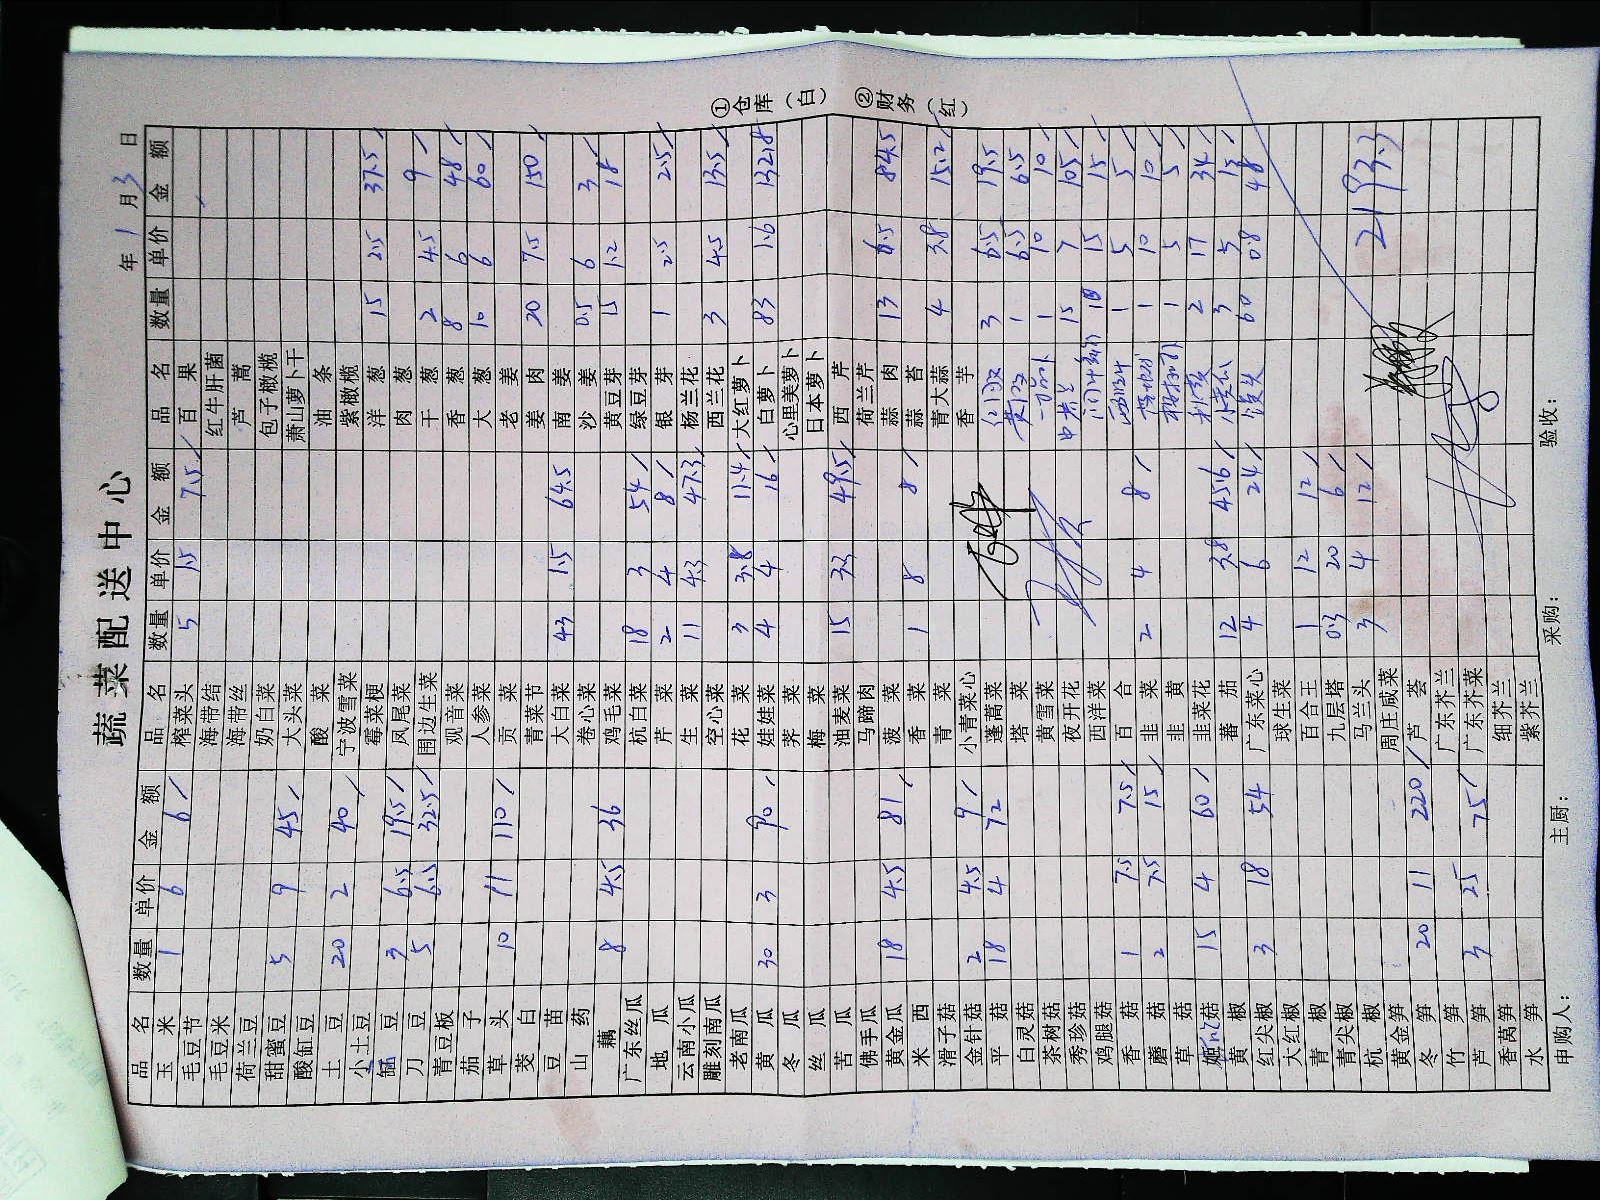 蔬菜配送中心
年1月3日
品名 数量 单价 金额 品名 数量 单价 金额 品名 数量 单价 金额
玉米 1 6 6 榨菜头 5 1.5 7.5 百果
毛豆节 海带结 红牛肝菌
毛豆米 海带丝 芦蒿
荷兰豆 奶白菜 包子橄榄
甜蜜豆 5 9 45 大头菜 萧山萝卜干
酸缸豆 酸菜 油条
土豆 20 2 40 宁波雪菜 紫橄榄
小土豆 霉菜梗 洋葱 15 2.5 37.5
缸豆 3 6.5 19.5 凤尾菜 肉葱
刀豆 5 6.5 32.5 围边生菜 干葱 2 4.5 9
青豆板 观音菜 香葱 8 6 48
茄子 人参菜 大葱 10 6 60
草头 10 11 110 贡菜 老姜
茭白 青菜节 姜肉 20 7.5 150
豆苗 大白菜 43 1.5 64.5 南姜
山药 卷心菜 沙姜 0.5 6 3
藕 8 4.5 36 鸡毛菜 黄豆芽 15 1.2 18
广东丝瓜 杭白菜 18 3 54 绿豆芽
地瓜 芹菜 2 4 8 银芽 1 2.5 2.5
云南小瓜 生菜 11 4.3 47.3 杨兰花
雕刻南瓜 空心菜 西兰花 3 4.5 13.5
老南瓜 花菜 3 3.8 11.4 大红萝卜
黄瓜 30 3 90 娃娃菜 4 4 16 白萝卜 83 1.6 132.8
冬瓜 荠菜 心里美萝卜
丝瓜 梅菜 日本萝卜
苦瓜 油麦菜 15 3.3 49.5 西芹
佛手瓜 马蹄肉 荷兰芹
黄金瓜 18 4.5 81 菠菜 蒜肉 13 6.5 84.5
米西 香菜 1 8 8 蒜苔
滑子菇 青菜 青大蒜 4 3.8 15.2
金针菇 2 4.5 9 小青菜心 香芋
平菇 18 4 72 蓬蒿菜 3 6.5 19.5
白灵菇 塔菜 1 6.5 6.5
茶树菇 黄雪菜 1 10 10
秀珍菇 夜开花 15 7 105
鸡腿菇 西洋菜 15 15
香菇 1 7.5 7.5 百合 1 5 5
蘑菇 2 7.5 15 韭菜 2 4 8 1 10 10
草菇 韭黄 1 5 5
姬菇 15 4 60 韭菜花 2 17 34
黄椒 蕃茄 12 3.8 45.6 3 5 15
红尖椒 3 18 54 广东菜心 4 6 24 60 0.8 48
大红椒 球生菜
青椒 百合王 1 12 12
青尖椒 九层塔 0.3 20 6
杭椒 马兰头 3 4 12 2193.3
黄金笋 周庄咸菜
冬笋 20 11 220 芦荟
竹笋 广东芥兰
芦笋 3 25 75 广东芥菜
香莴笋 细芥兰
水笋 紫芥兰
申购人： 主厨： 采购： 验收：
①仓库（白） ②财务（红）